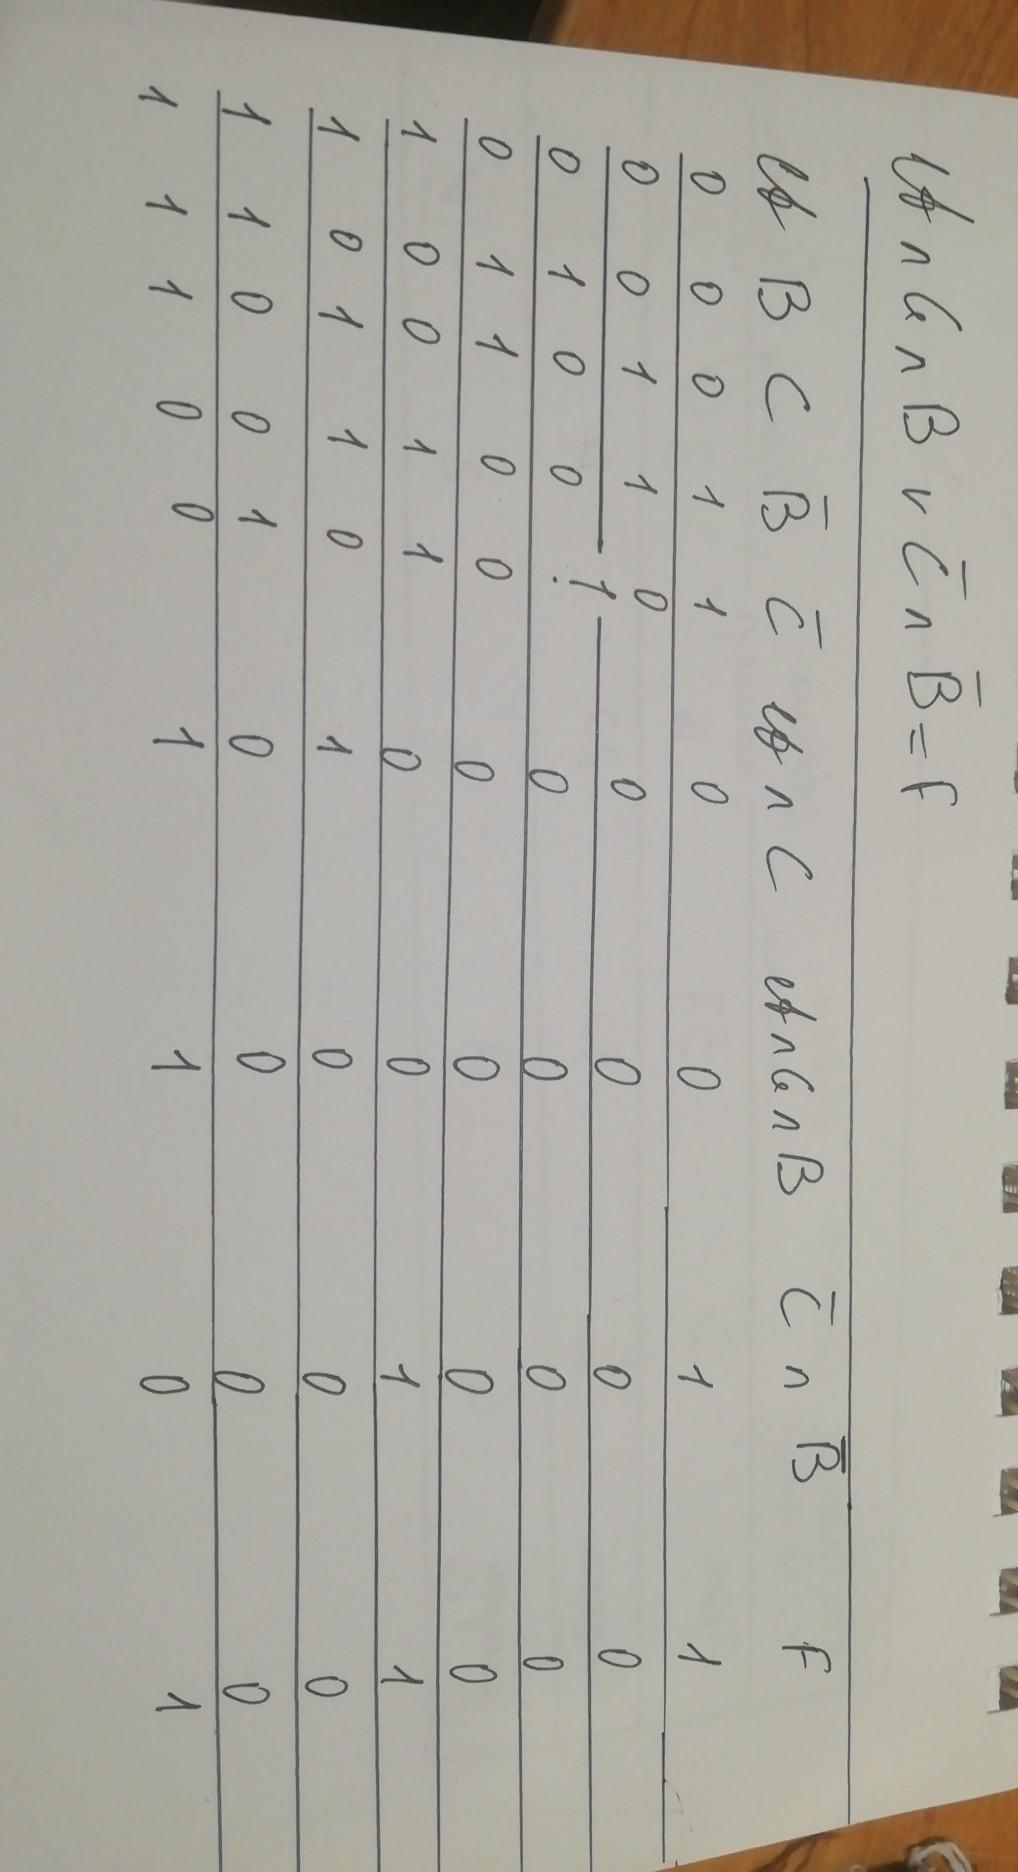 A ∧ C ∧ B ∨ C̅ ∧ B̅ = F
A B C B̅ C̅ A ∧ C A ∧ C ∧ B C̅ ∧ B̅ F
0 0 0 1 1 0 0 1 1
0 0 1 1 0 0 0 0 0
0 1 0 0 1 0 0 0 0
0 1 1 0 0 0 0 0 0
1 0 0 1 1 0 0 1 1
1 0 1 1 0 1 0 0 0
1 1 0 0 1 0 0 0 0
1 1 1 0 0 1 1 0 1